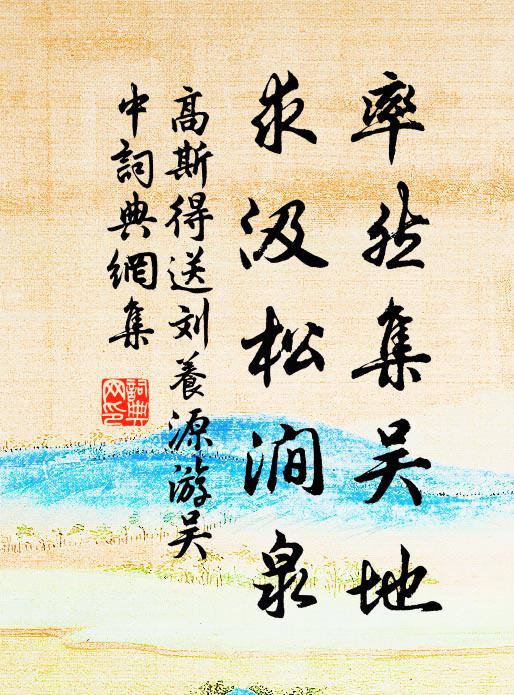 率然集吴地
求汲松澗泉
高斯得送刘養源游吴
中詞典網集
詞典
网印